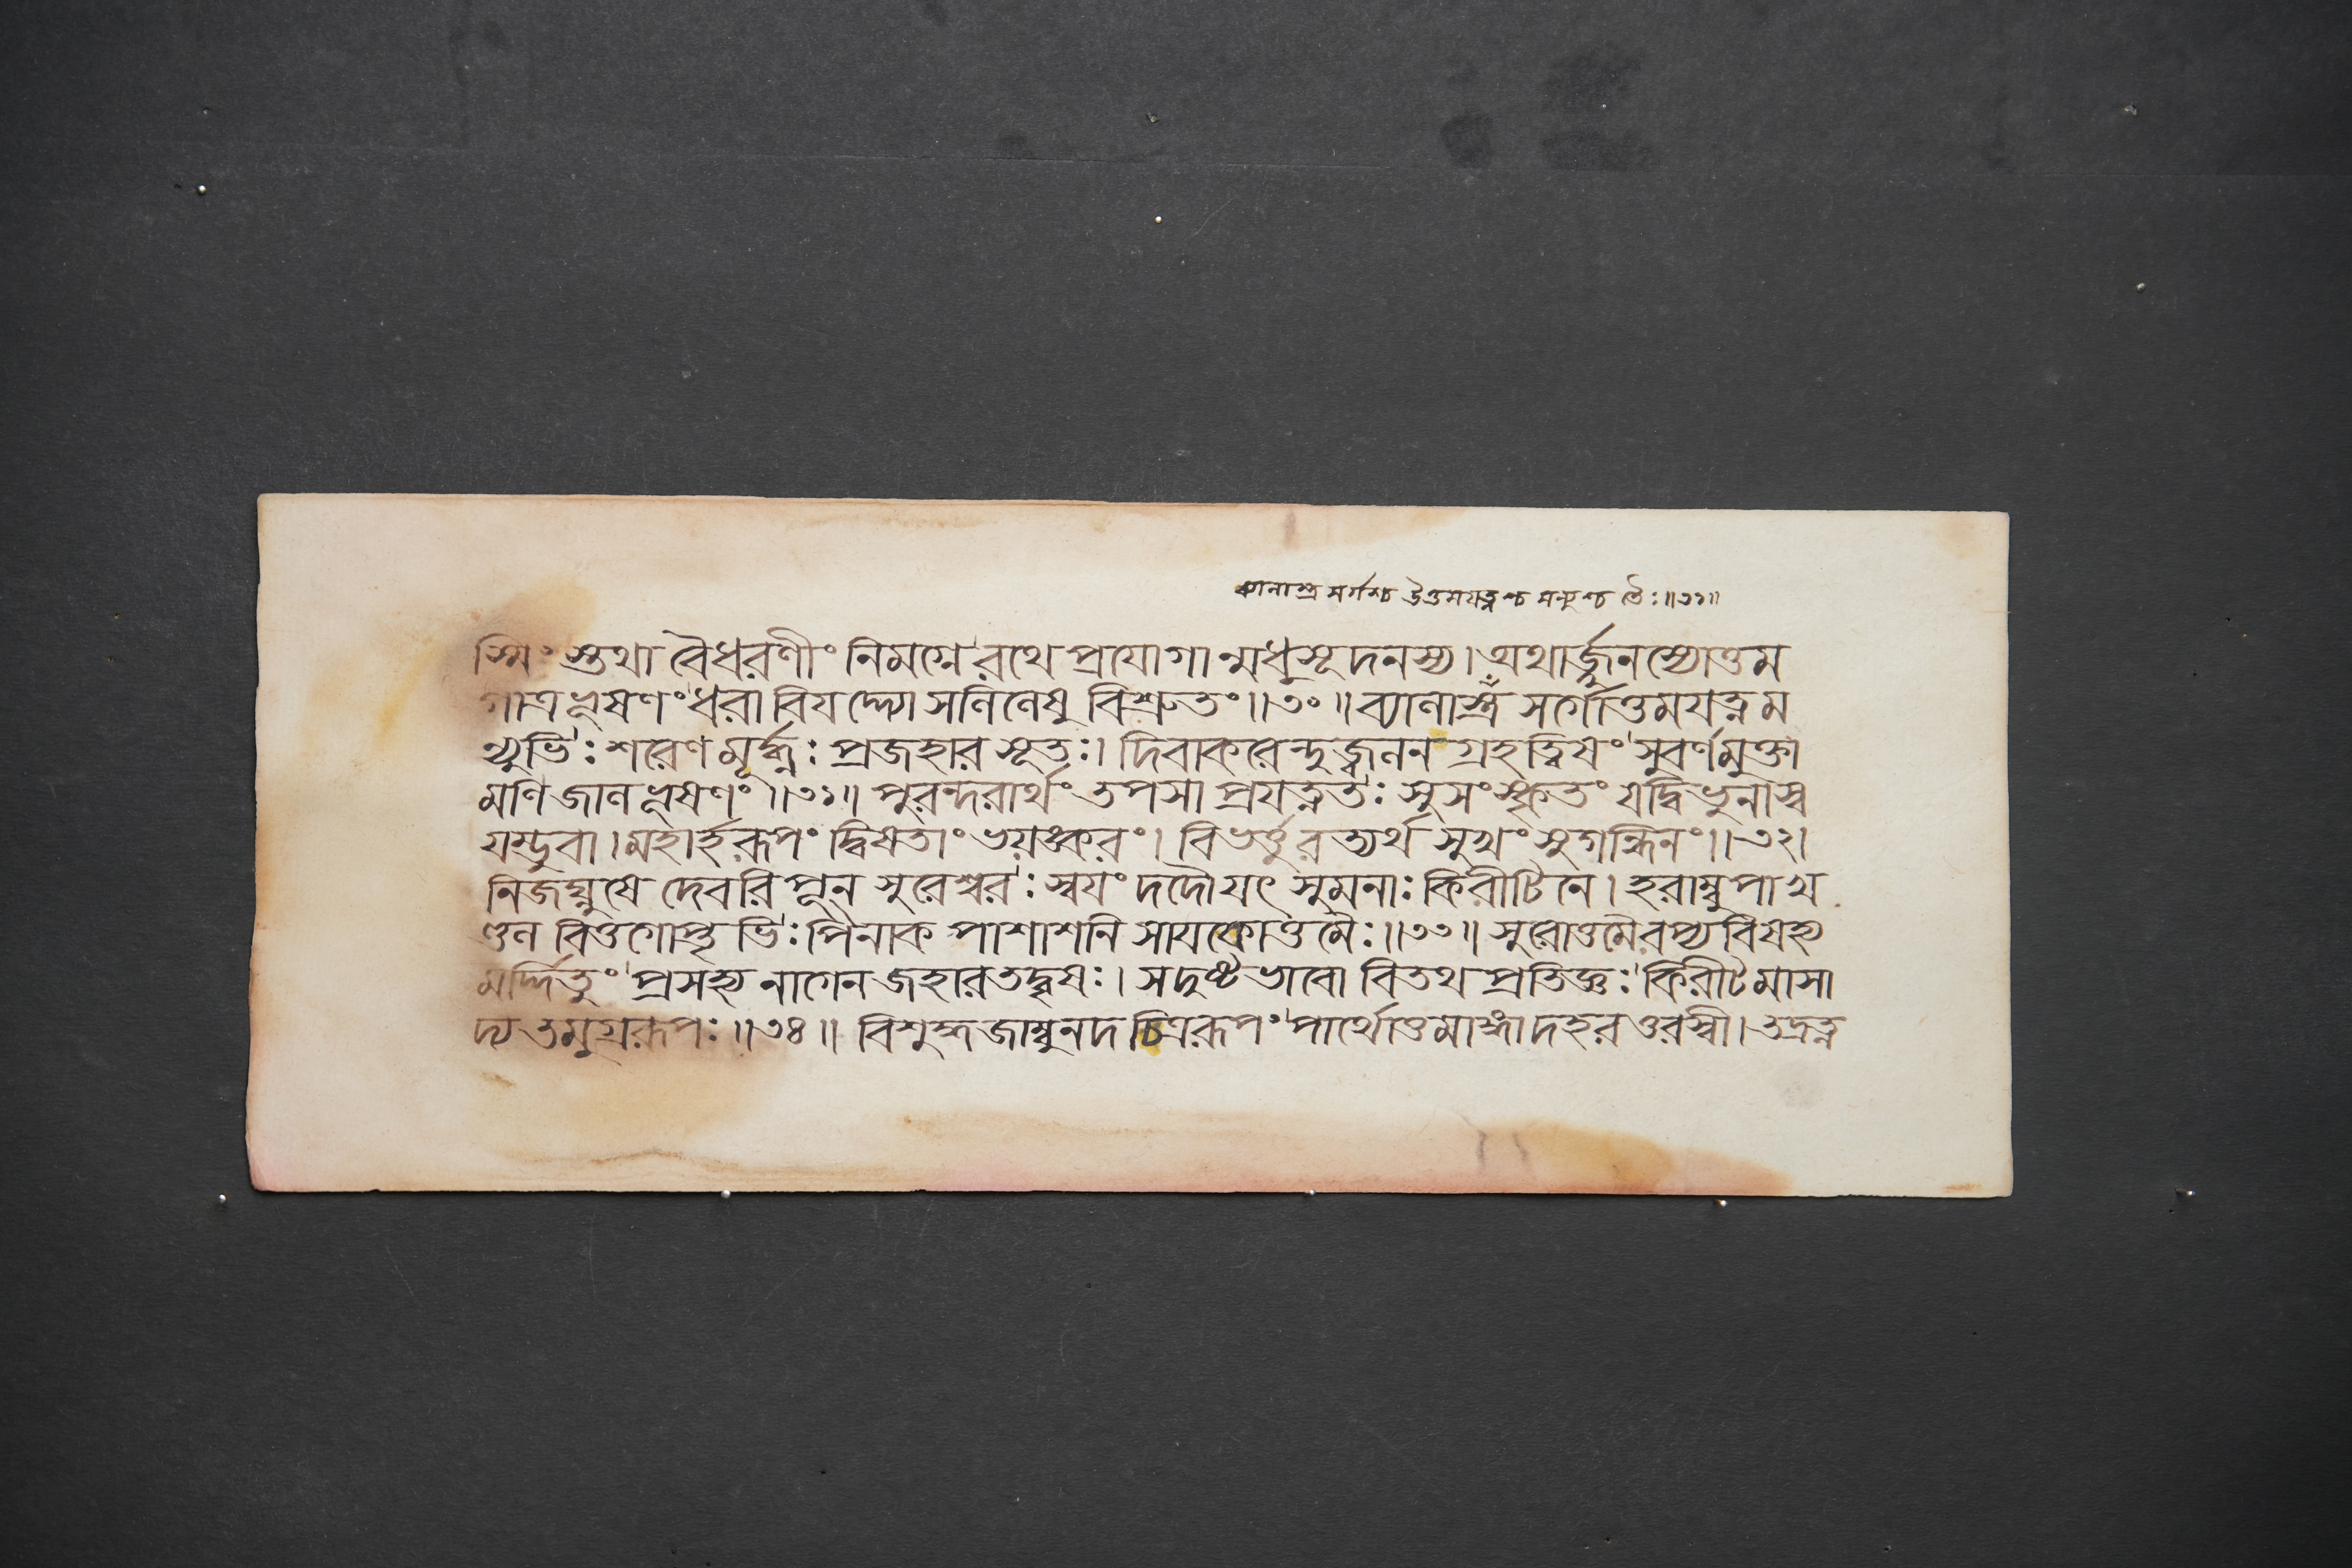 ব্যানাস্ত্র সর্গশ্চ উত্তমযত্নশ্চ মন্যুশ্চ তৈঃ॥৩১॥
স্মিংস্তথা বৈধরণীং নিমগ্নে রথে প্রযোগান্মধুসূদনস্য। অথার্জ্জুনস্যোত্তম
গাত্রভূষণং ধরাবিযদ্দ্যোসলিলেষু বিশ্রুতং॥৩০॥ ব্যালাস্ত্র সর্গোত্তমযত্নম
ন্যুভিঃ শরেণ মূর্দ্ধ্নঃ প্রজহার সূতঃ। দিবাকরেন্দুজ্বলন গ্রহত্বিষং সুবর্ণমুক্তা
মণিজালভূষণং॥৩১॥ পুরন্দরার্থং তপসা প্রযত্নতঃ সুসংস্কৃতং যদ্বিভুনাস্ব
যম্ভুবা। মহার্হরূপং দ্বিষতাং ভয়ঙ্করং। বিভর্ত্তুরত্যর্থ সুখং সুগন্ধিনং॥৩২।
নিজঘ্নুষে দেবরিপূন সুরেশ্বরঃ স্বযং দদৌ যৎ সুমনাঃ কিরীটিনে। হরাম্বুপাখ
ণ্ডল বিত্তগোপ্তৃভিঃ পিনাক পাশাশনি সাযকোত্তমৈঃ॥৩৩॥ সুরোত্তমৈরপ্যবিষহ্য
মর্দ্দিতুং প্রসহ্য নাগেন জহার তদ্বৃষঃ। স দুষ্টভাবো বিতথ প্রতিজ্ঞঃ কিরীটমাসা
দ্য তমুগ্ররূপঃ॥৩৪॥ বিশুদ্ধজাম্বুনদ চিত্ররূপং পার্থোত্তমাঙ্গাদহরত্তরস্বী। তদ্রত্ন